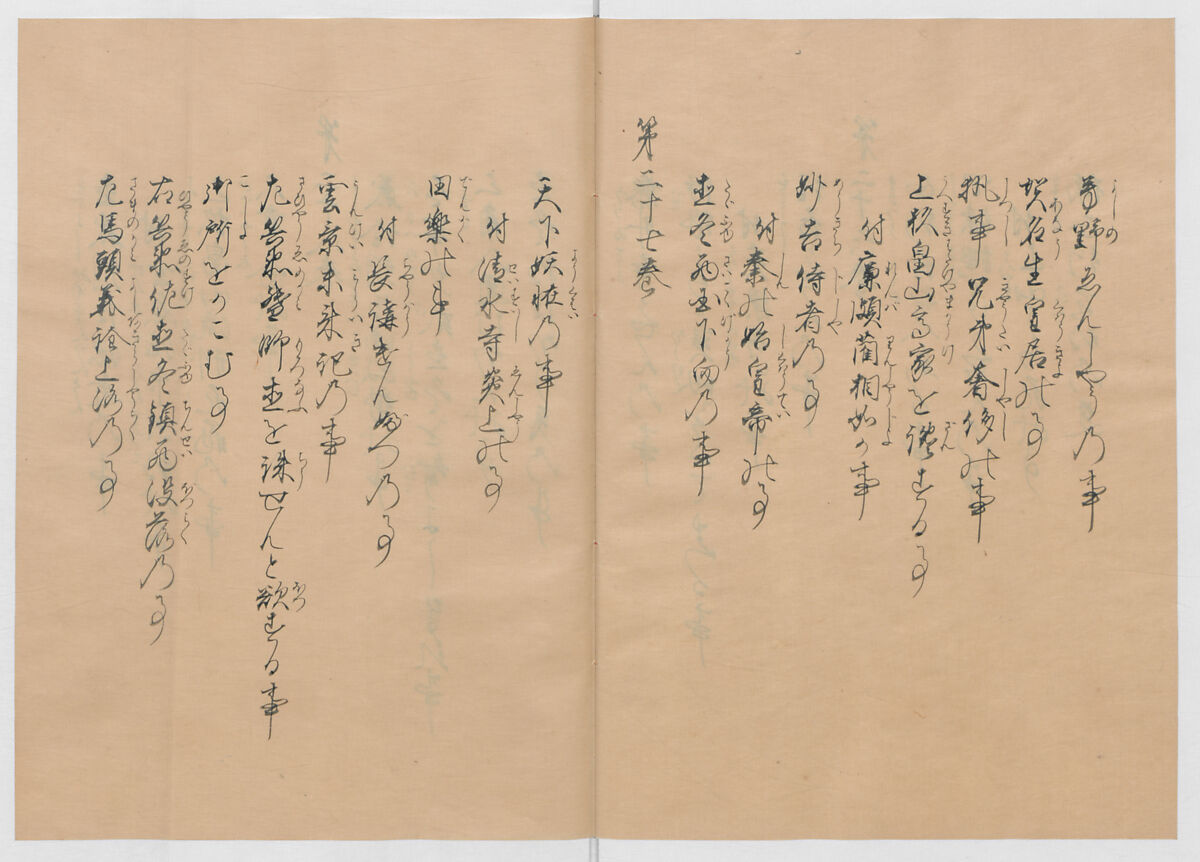 芳野ゑんしやうの事
賀名生皇居の事
執事兄弟奢侈の事
上杉畠山高家を讒する事
付廉頗藺相如か事
妙吉侍者の事
付秦の始皇帝の事
直冬西国下向の事
第二十七巻
天下妖怪の事
付清水寺炎上の事
田樂の事
付長講けんぶつの事
雲景未来記の事
左兵衛督師直を誅せんと欲する事
御所をかこむ事
右兵衛佐直冬鎮西没落の事
左馬頭義詮上洛の事